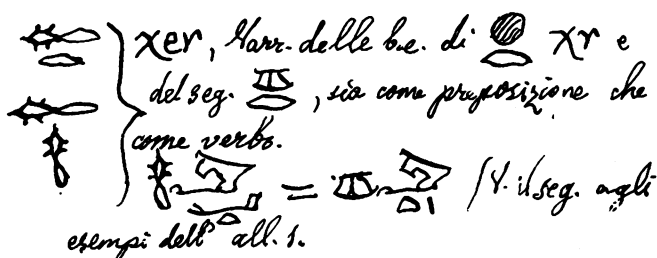 χer, Varr. delle b.e. di χr e
del seg. , sia come preposizione che
come verbo.
= (V. il seg. agli
esempi dell' all. 1.